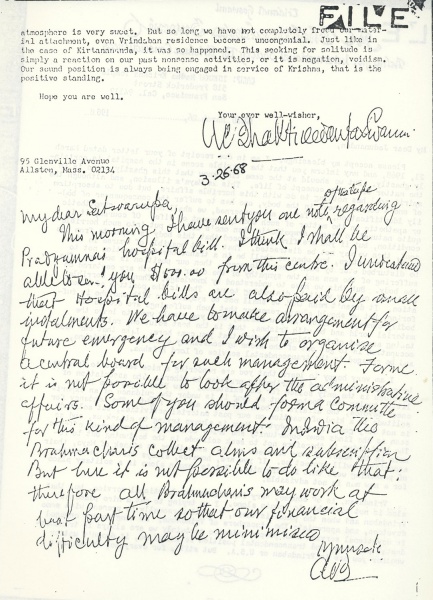 FILE
atmosphere is very sweet. But so long we have not completely freed our mater-
ial attachment, even Vrindaban residence becomes uncongenial. Just like in
the case of Kirtanananda, it was so happened. This seeking for solitude is
simply a reaction on our past nonsense activities, or it is negation, voidism.
Our sound position is always being engaged in service of Krishna, that is the
positive standing.
Hope you are well.
Your ever well-wisher,
A.C. Bhaktivedanta Swami
95 Glenville Avenue
Allston, Mass. 02134
3-26-68
My dear Satsvarupa,
This morning I have sent you one note regarding
Pradyumna's hospital bill. I think I shall be
able to send you from this centre. I understand
that Hospital bills are also paid by small
instalments. We have to make arrangement for
future emergency and I wish to organise
a central board for such management. For me
it is not possible to look after the administrative
affairs. Some of you should form a Committee
for this kind of management. In India the
Brahmacharis collect alms and subscription
But here it is not possible to do like that;
therefore all Brahmacharis may work at
least part time so that our financial
difficulty may be minimised
ACB